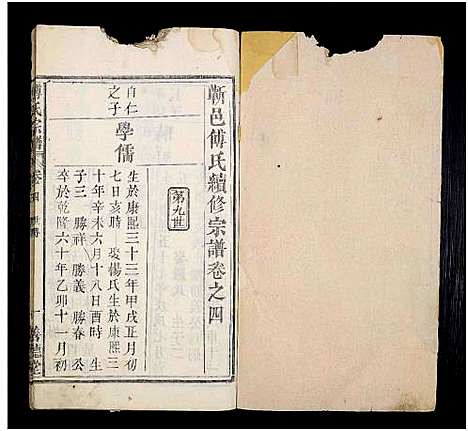 蘄邑傅氏續修宗譜卷之四
第九世
自仁
之子
學儒
生於康熙三十三年甲戌正月初
七日亥時 娶楊氏生於康熙三
十年辛未六月十八日酉時 生
子三 勝祥 勝義 勝春 公
卒於乾隆六十年乙卯十一月初
傅氏宗譜
卷四